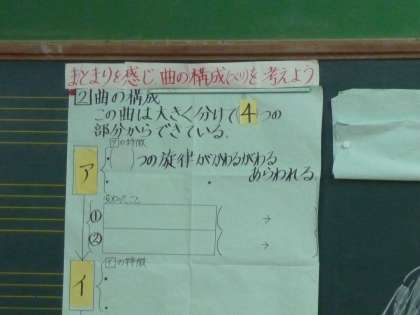 まとまりを感じ 曲の構成(つくり)を 考えよう
2 曲の構成
この曲は大きく分けて4つの
部分からできている。
アの特徴
ア
・( )つの旋律がかわるがわる
あらわれる
・ ・
①( →
②( →
イの特徴
イ